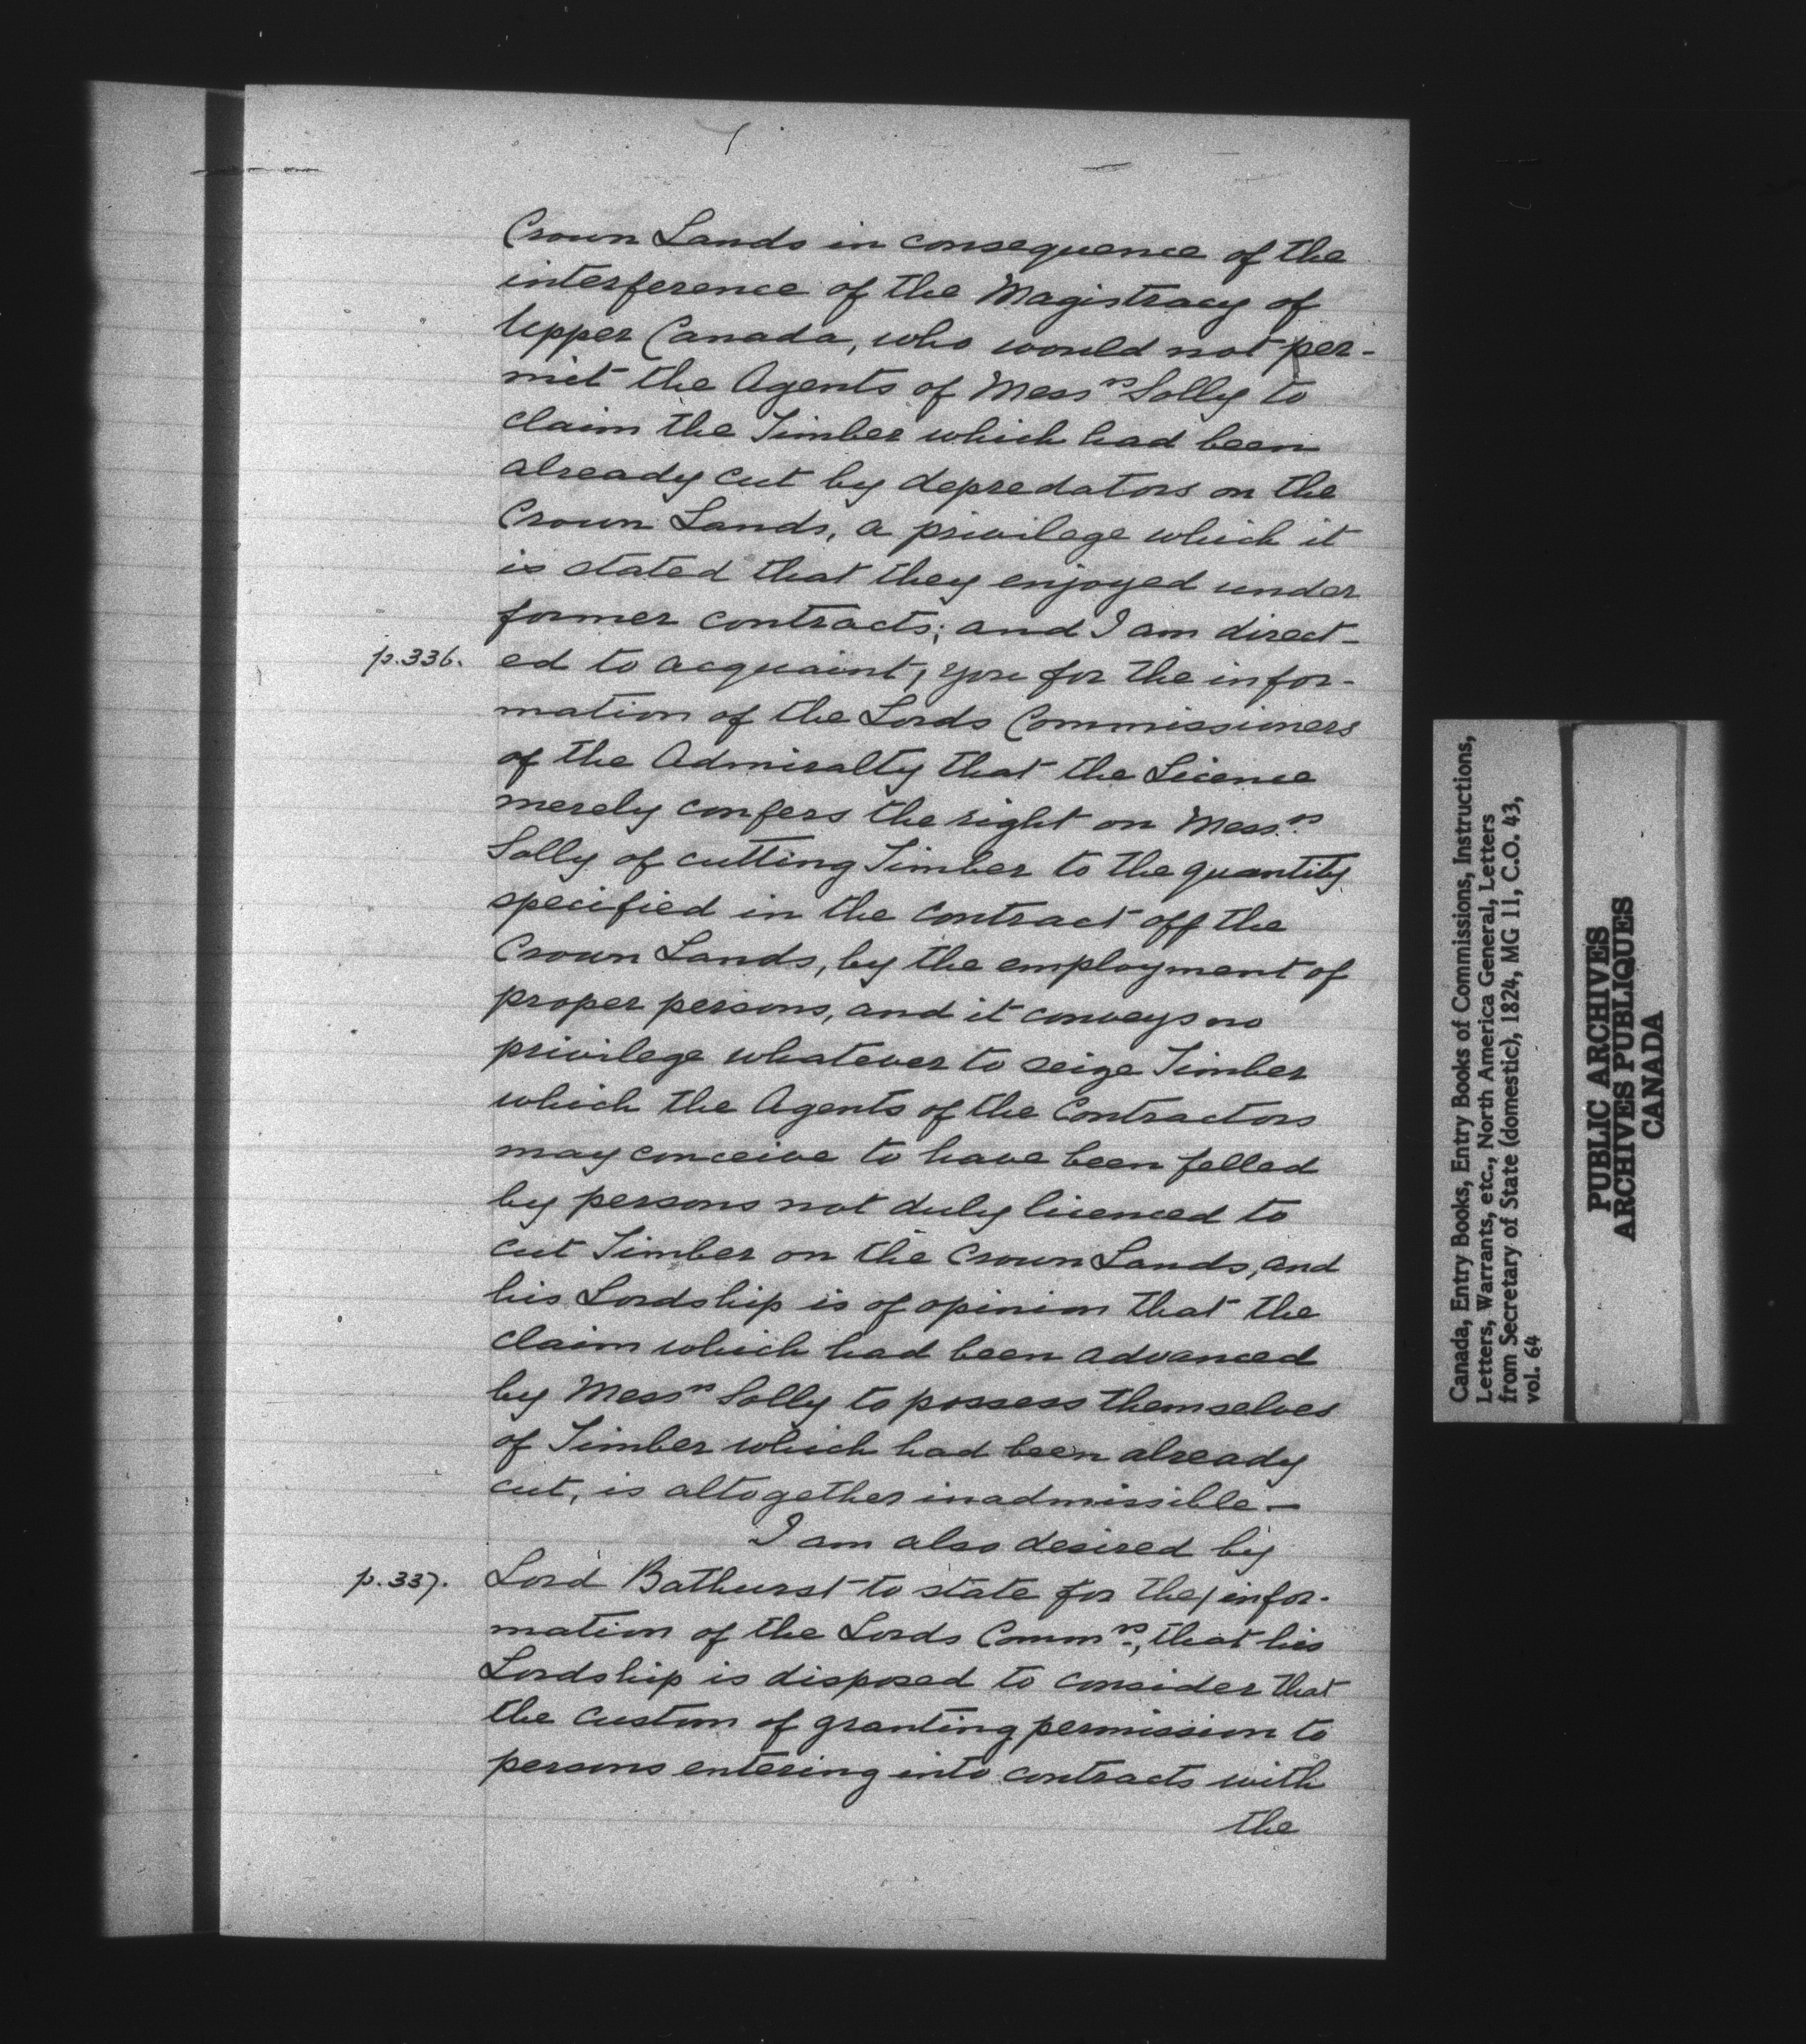 Crown Lands in consequence of the
interference of the Magistracy of
Upper Canada, who would not per-
mit the Agents of Messrs Solly to
claim the Timber which had been
already cut by depredators on the
Crown Lands, a privilege which it
is stated that they enjoyed under
former contracts; and I am direct-
p.336. ed to acquaint, you for the infor-
mation of the Lords Commissioners
of the Admiralty that the Licence
merely confers the right on Messrs
Solly of cutting Timber to the quantity
specified in the contract off the
Crown Lands, by the employment of
proper persons, and it conveys no
privilege whatever to seize Timber
which the Agents of the Contractors
may conceive to have been felled
by persons not duly licenced to
cut Timber on the Crown Lands, and
his Lordship is of opinion that the
claim which had been advanced
by Messrs Solly to possess themselves
of Timber which had been already
cut, is altogether inadmissible.—
I am also desired by
p.337. Lord Bathurst to state for the/infor-
mation of the Lords Commrs, that his
Lordship is disposed to consider that
the custom of granting permission to
persons entering into contracts with
the
Canada, Entry Books, Entry Books of Commissions, Instructions,
Letters, Warrants, etc., North America General, Letters
from Secretary of State (domestic), 1824, MG 11, C.O. 43,
vol. 64
PUBLIC ARCHIVES
ARCHIVES PUBLIQUES
CANADA